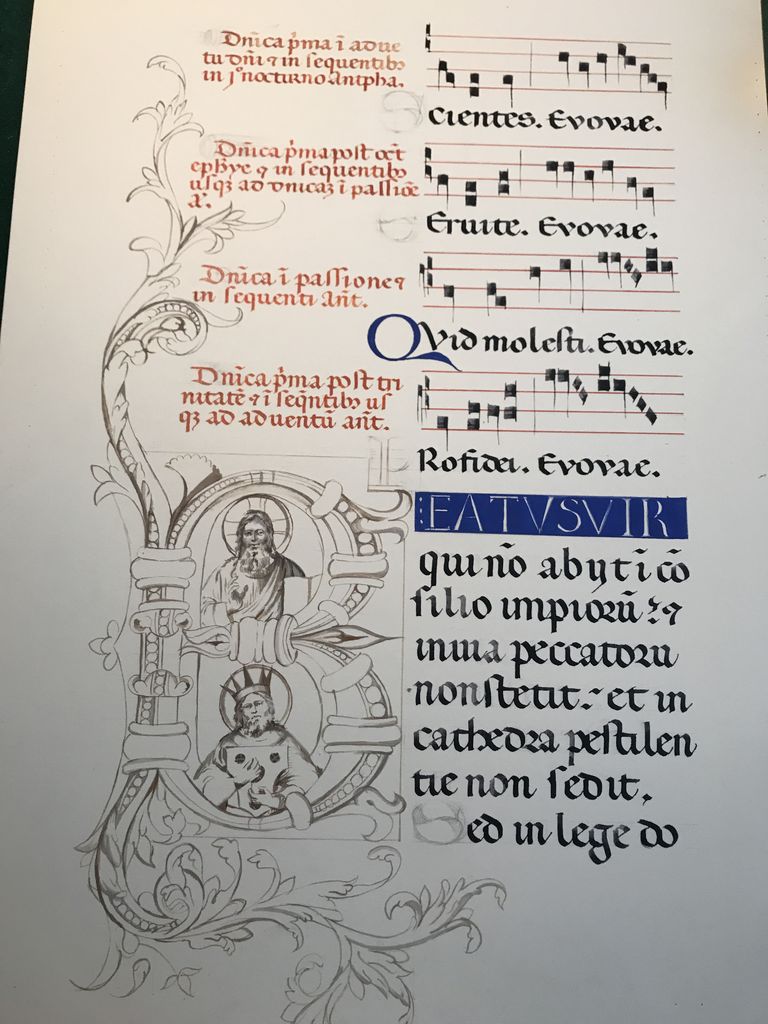 Dñica p̃ma ĩ adue
tu dñi ⁊ in sequentibꝫ
in jº nocturno antpha.
cientes. Evovae.
Dñica p̃ma post oct
in sequentibꝫ
usqꝫ ad dnicaꝫ ĩ passiõe
a͂.
Eruite. Evovae.
Dñica ĩ passione ⁊
in sequenti añt.
Qvid molesti. Evovae.
Dñica p̃ma post tri
nitatẽ ⁊ ĩ seq̃ntibꝫ us
qꝫ ad adventũ añt.
Rofidei. Evovae.
BEATVSVIR
qui nõ abijt i cõ
silio impiorũ: ⁊
in uia peccatoru
non stetit: et in
cathedra pestilen
tie non sedit.
Sed in lege do